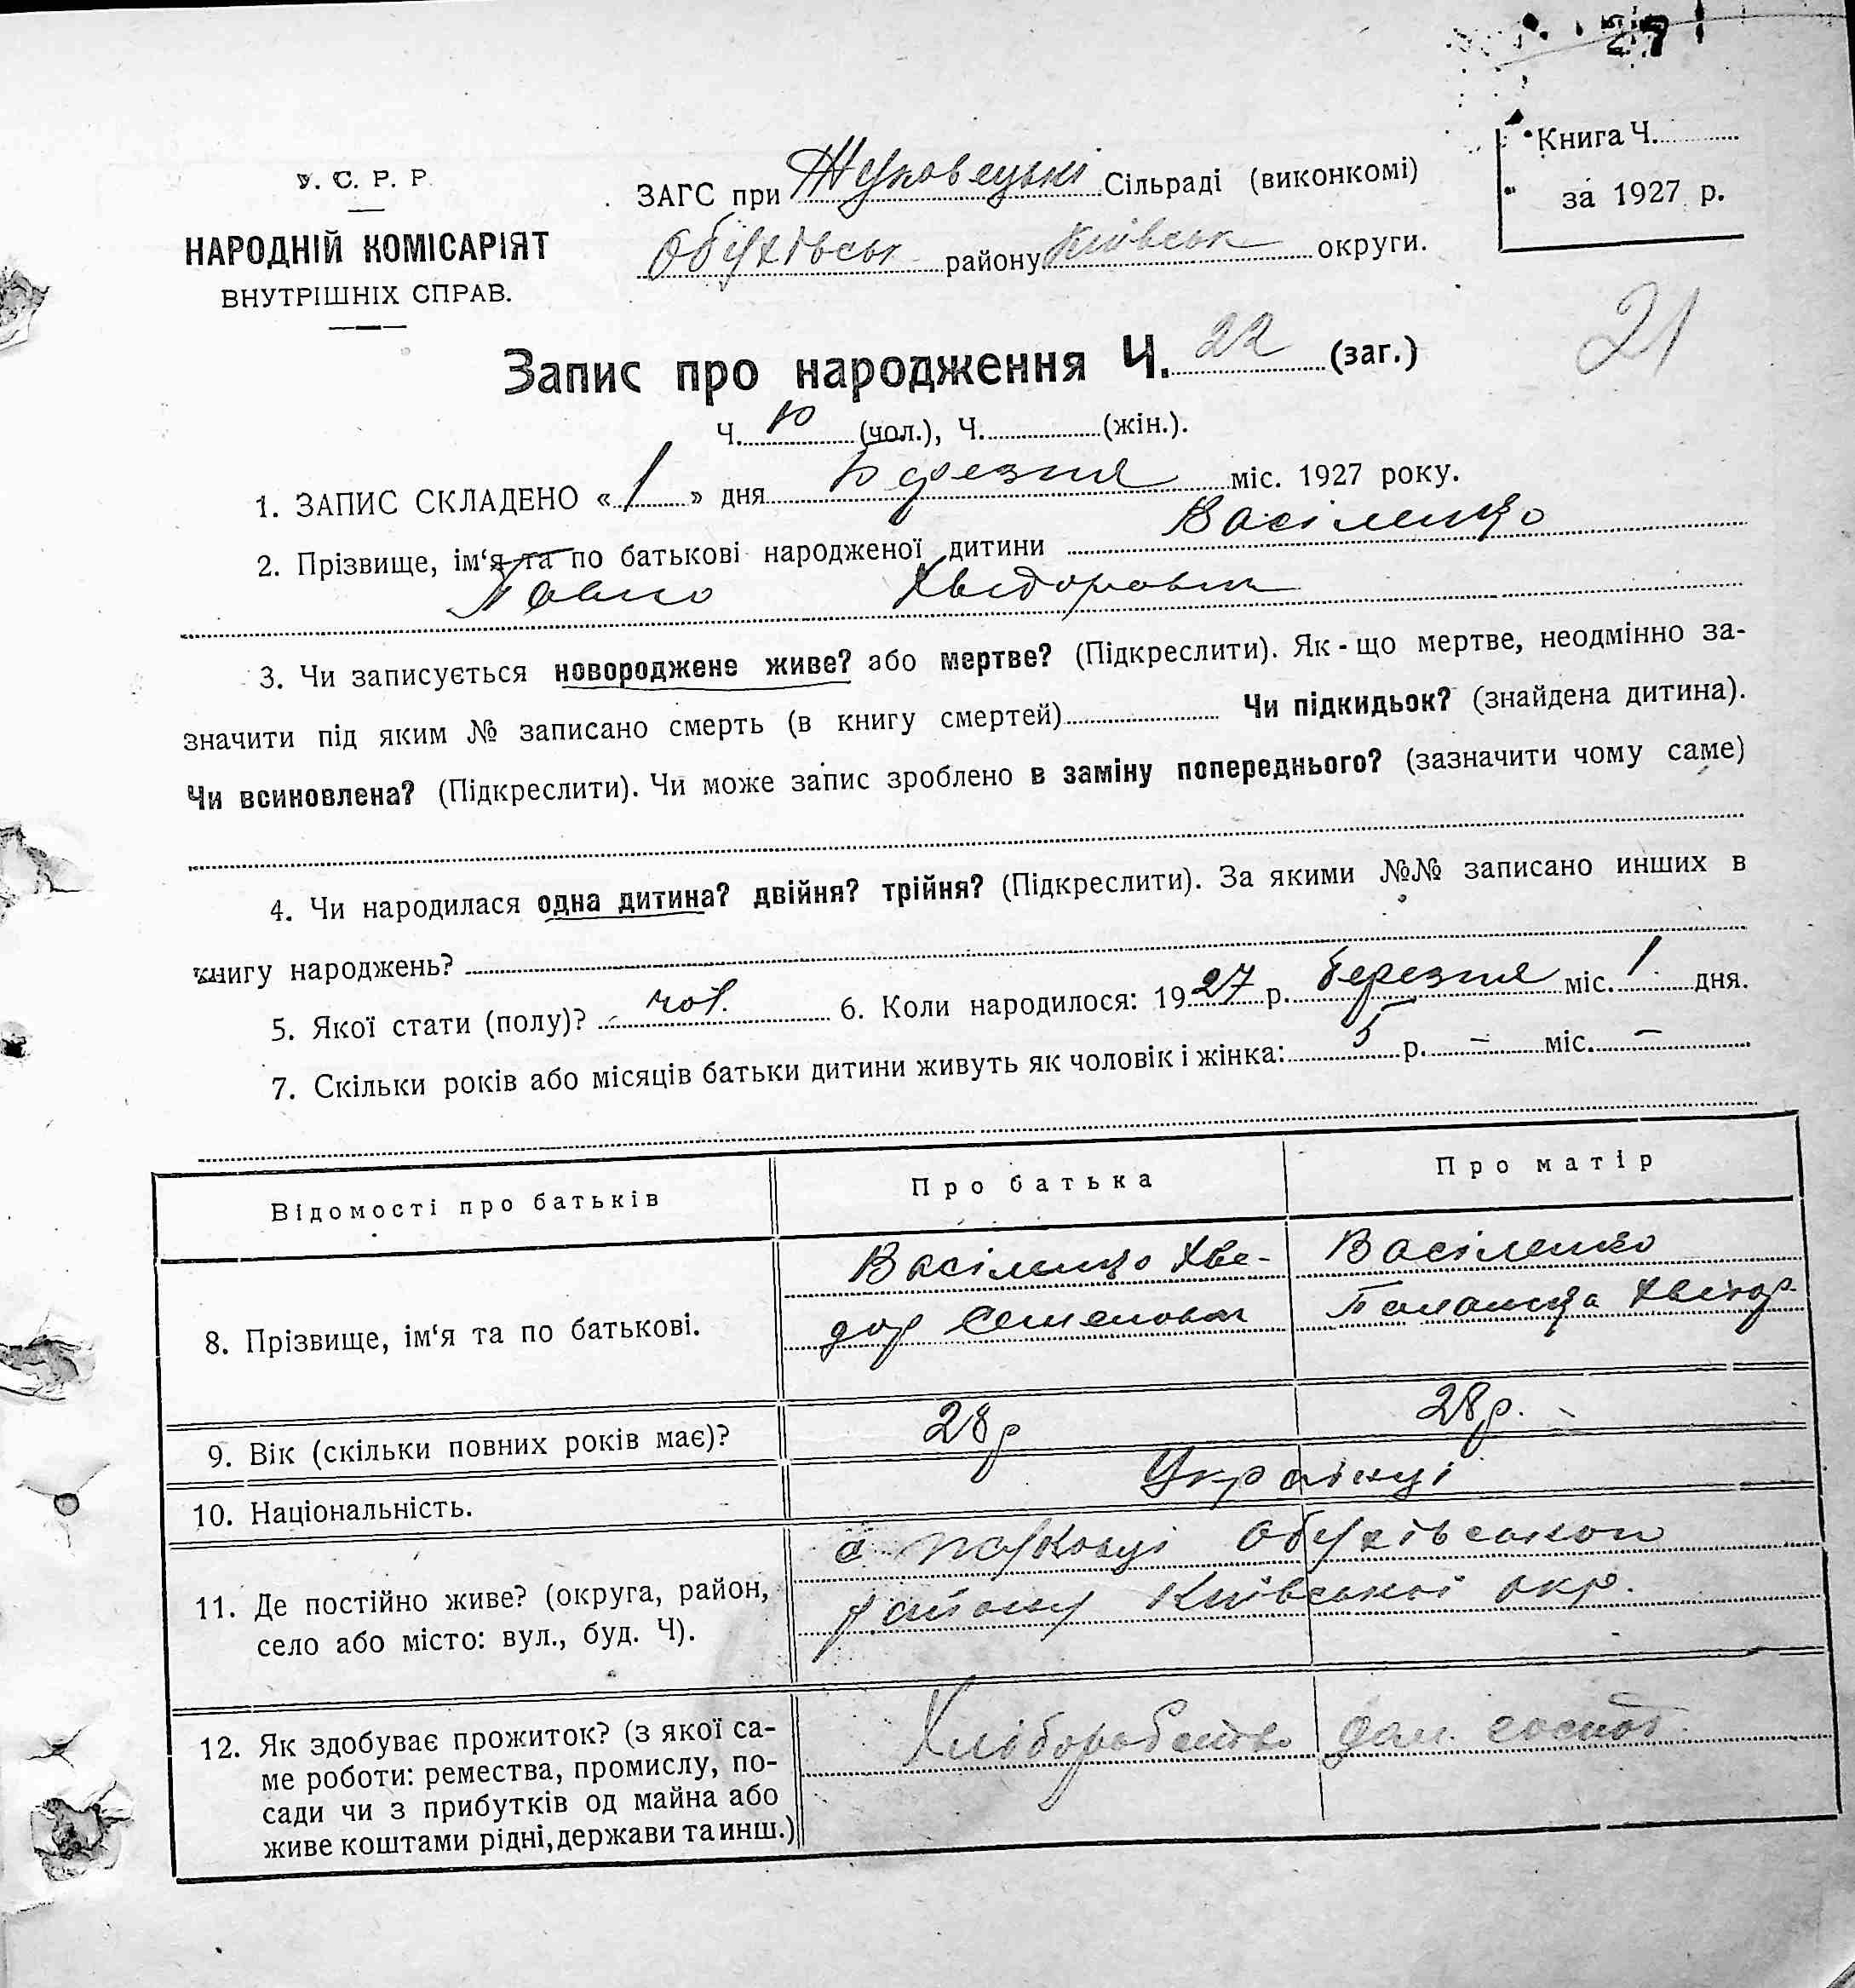 27
Книга Ч.
за 1927 р.
У. С. Р. Р.
НАРОДНІЙ КОМІСАРІЯТ
ВНУТРІШНІХ СПРАВ.
ЗАГС при Жуковецькі Сільраді (виконкомі)
Обухівськ району Київськ округи.
21
Запис про народження Ч. 22 (заг.)
Ч. 10 (чол.), Ч. (жін.).
1. ЗАПИС СКЛАДЕНО « 1 » дня Березня міс. 1927 року.
2. Прізвище, ім‘я та по батькові народженої дитини Васіленко
Павло Хведорович
3. Чи записується новороджене живе? або мертве? (Підкреслити). Як-що мертве, неодмінно за-
значити під яким № записано смерть (в книгу смертей) Чи підкидьок? (знайдена дитина).
Чи всиновлена? (Підкреслити). Чи може запис зроблено в заміну попереднього? (зазначити чому саме)
4. Чи народилася одна дитина? двійня? трійня? (Підкреслити). За якими №№ записано инших в
книгу народжень?
5. Якої стати (полу)? чол. 6. Коли народилося: 1927 р. березня міс. 1 дня.
7. Скільки років або місяців батьки дитини живуть як чоловік і жінка: 5 р. – міс. –
Відомості про батьків Про батька Про матір
8. Прізвище, ім‘я та по батькові. Васіленко Хве-
дор Семенович
Васіленко
Паланка
9. Вік (скільки повних років має)? 28р 28р.
10. Національність. Українці
11. Де постійно живе? (округа, район,
село або місто: вул., буд. Ч).
с Обухівського
району Київськоі окр.
12. Як здобуває прожиток? (з якої са-
ме роботи: ремества, промислу, по-
сади чи з прибутків од майна або
живе коштами рідні, держави та инш.)
Хліборобство дом. господ.